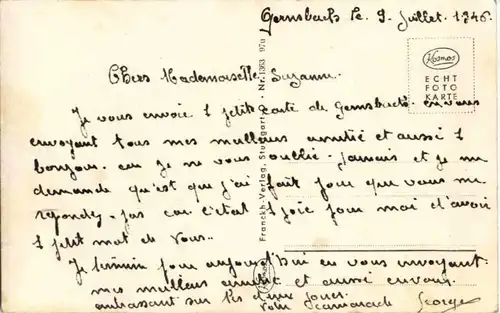 Gernsbach le 9 Juillet. 1946.
Chers Mademoiselle Suzanne.
Je vous envoie 1 petit carte de Gernsbach. en vous
envoyant tous mes meilleurs amitié et aussi 1
bonjour. car je ne vous oublie jamais et je me
demande qu'est que j'ai fait pour que vous me
repondez pas car c'etait 1 joie pour moi d'avoir
1 petit mot de vous..
Je termin pour aujourd'hui en vous envoyant
mes meilleurs amitié et aussi en vous
embrassant sur les deux joues.
Votre camarade Georges
Kosmos
ECHT
FOTO
KARTE
Franckh-Verlag, Stuttgart Nr. 1363 970
Kosmos